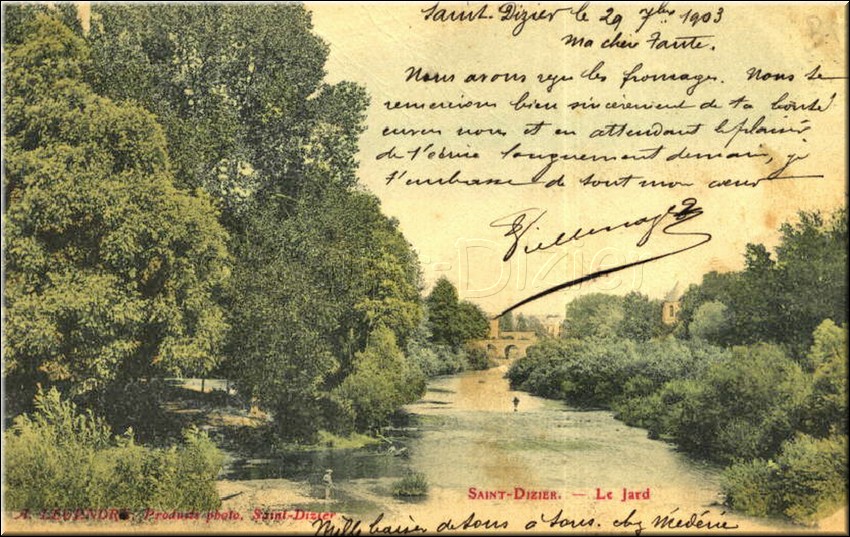 Saint-Dizier le 29 7bre 1903
Ma chère Tante.
Nous avons reçu les fromages. Nous te
remercions bien sincèrement de ta bonté
envers nous et en attendant le plaisir
de t'écrire longuement demain, je
t'embrasse de tout mon cœur
Saint-Dizier
SAINT-DIZIER. — Le Jard
A. LEGENDRE, Produits photo, Saint-Dizier
Mille baisers de tous à tous. chez Médérie